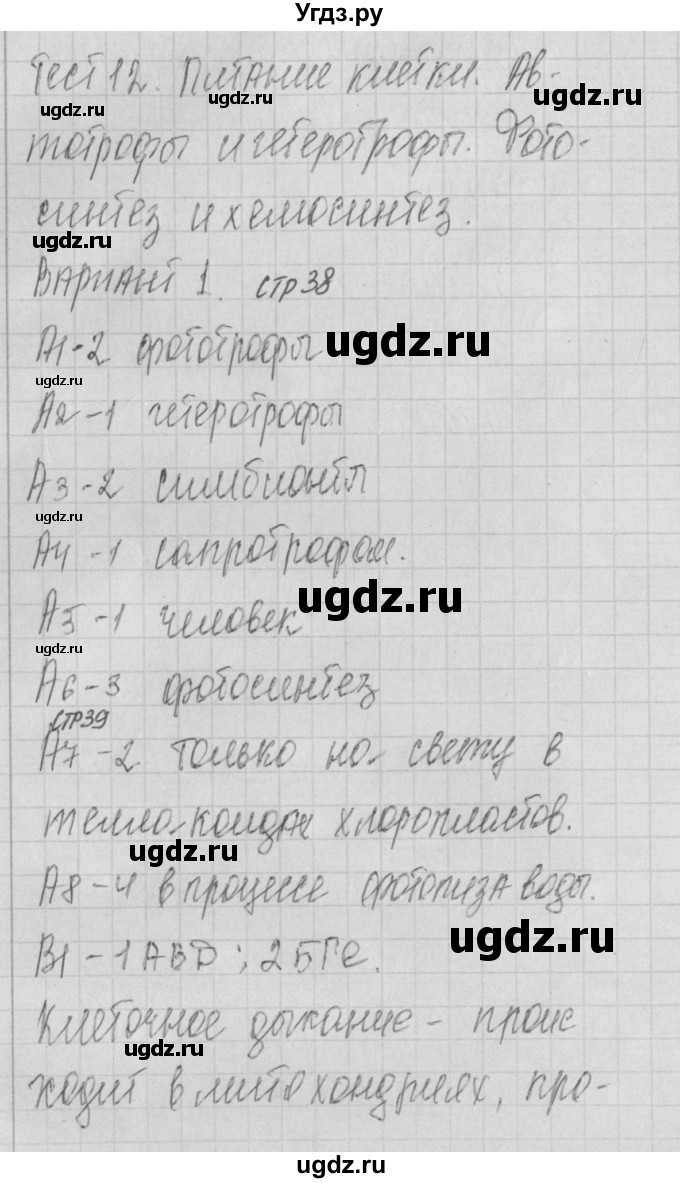 Угдз.ру
Тест 12. Питание клетки. Ав-
ugdz.ru ugdz.ru ugdz.ru
тотрофы и гетеротрофы. Фото-
синтез и хемосинтез.
ugdz.ru
Вариант 1. стр 38
А1-2 фототрофы ugdz.ru
ugdz.ru
А2-1 гетеротрофы
А3-2 симбионты
ugdz.ru
А4-1 сапротрофам.
ugdz.ru
А5-1 человек
ugdz.ru
А6-3 фотосинтез
стр39
А7-2 только на свету в
тиллакоидах хлоропластов.
ugdz.ru
А8-4 в процессе фотолиза воды.
ugdz.ru
В1-1АВD; 2БГЕ.
Клеточное дыхание - проис
ugdz.ru
ходит в митохондриях, про-
ugdz.ru